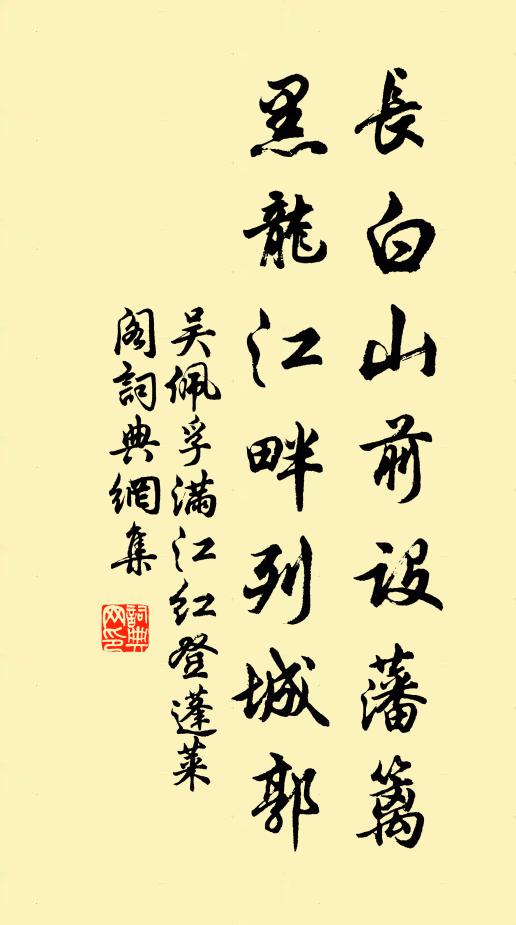 長白山前設藩籬
黑龍江畔列城郭
吳佩孚滿江紅登蓬萊
閣詞典網集
詞典
网印